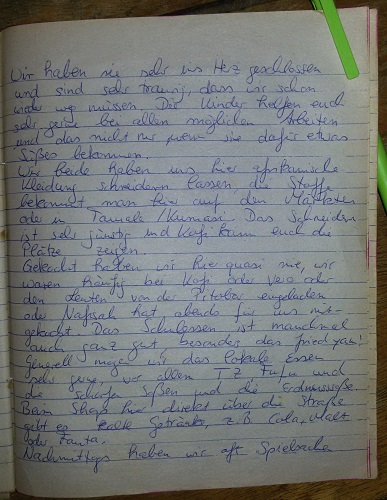 Wir haben sie sehr ins Herz geschlossen
und sind sehr traurig, dass wir schon
wieder weg müssen. Die Kinder helfen euch
sehr gerne bei allen möglichen Arbeiten
und das nicht nur wenn sie dafür etwas
Süßes bekommen.
Wir beide haben uns hier afrikanische
Kleidung schneidern lassen, die Stoffe
bekommt man hier auf den Märkten
oder in Tamale/Kumasi. Das Schneidern
ist sehr günstig und Kofi kann euch die
Plätze zeigen.
Gekocht haben wir hier quasi nie, wir
waren häufig bei Kofi oder Vera oder
den Leuten von der eingeladen
oder Nafisah hat abends für uns mit-
gekocht. Das Schulessen ist manchmal
auch ganz gut besonders das fried yam!
Generell mögen wir das lokale Essen
sehr gerne, vor allem TZ, Fufu und
die scharfen Soßen und die Erdnusssoße.
Beim Shop hier direkt über die Straße
gibt es kalte Getränke, z.B. Cola, Malt
oder Fanta.
Nachmittags haben wir oft Spielsachen